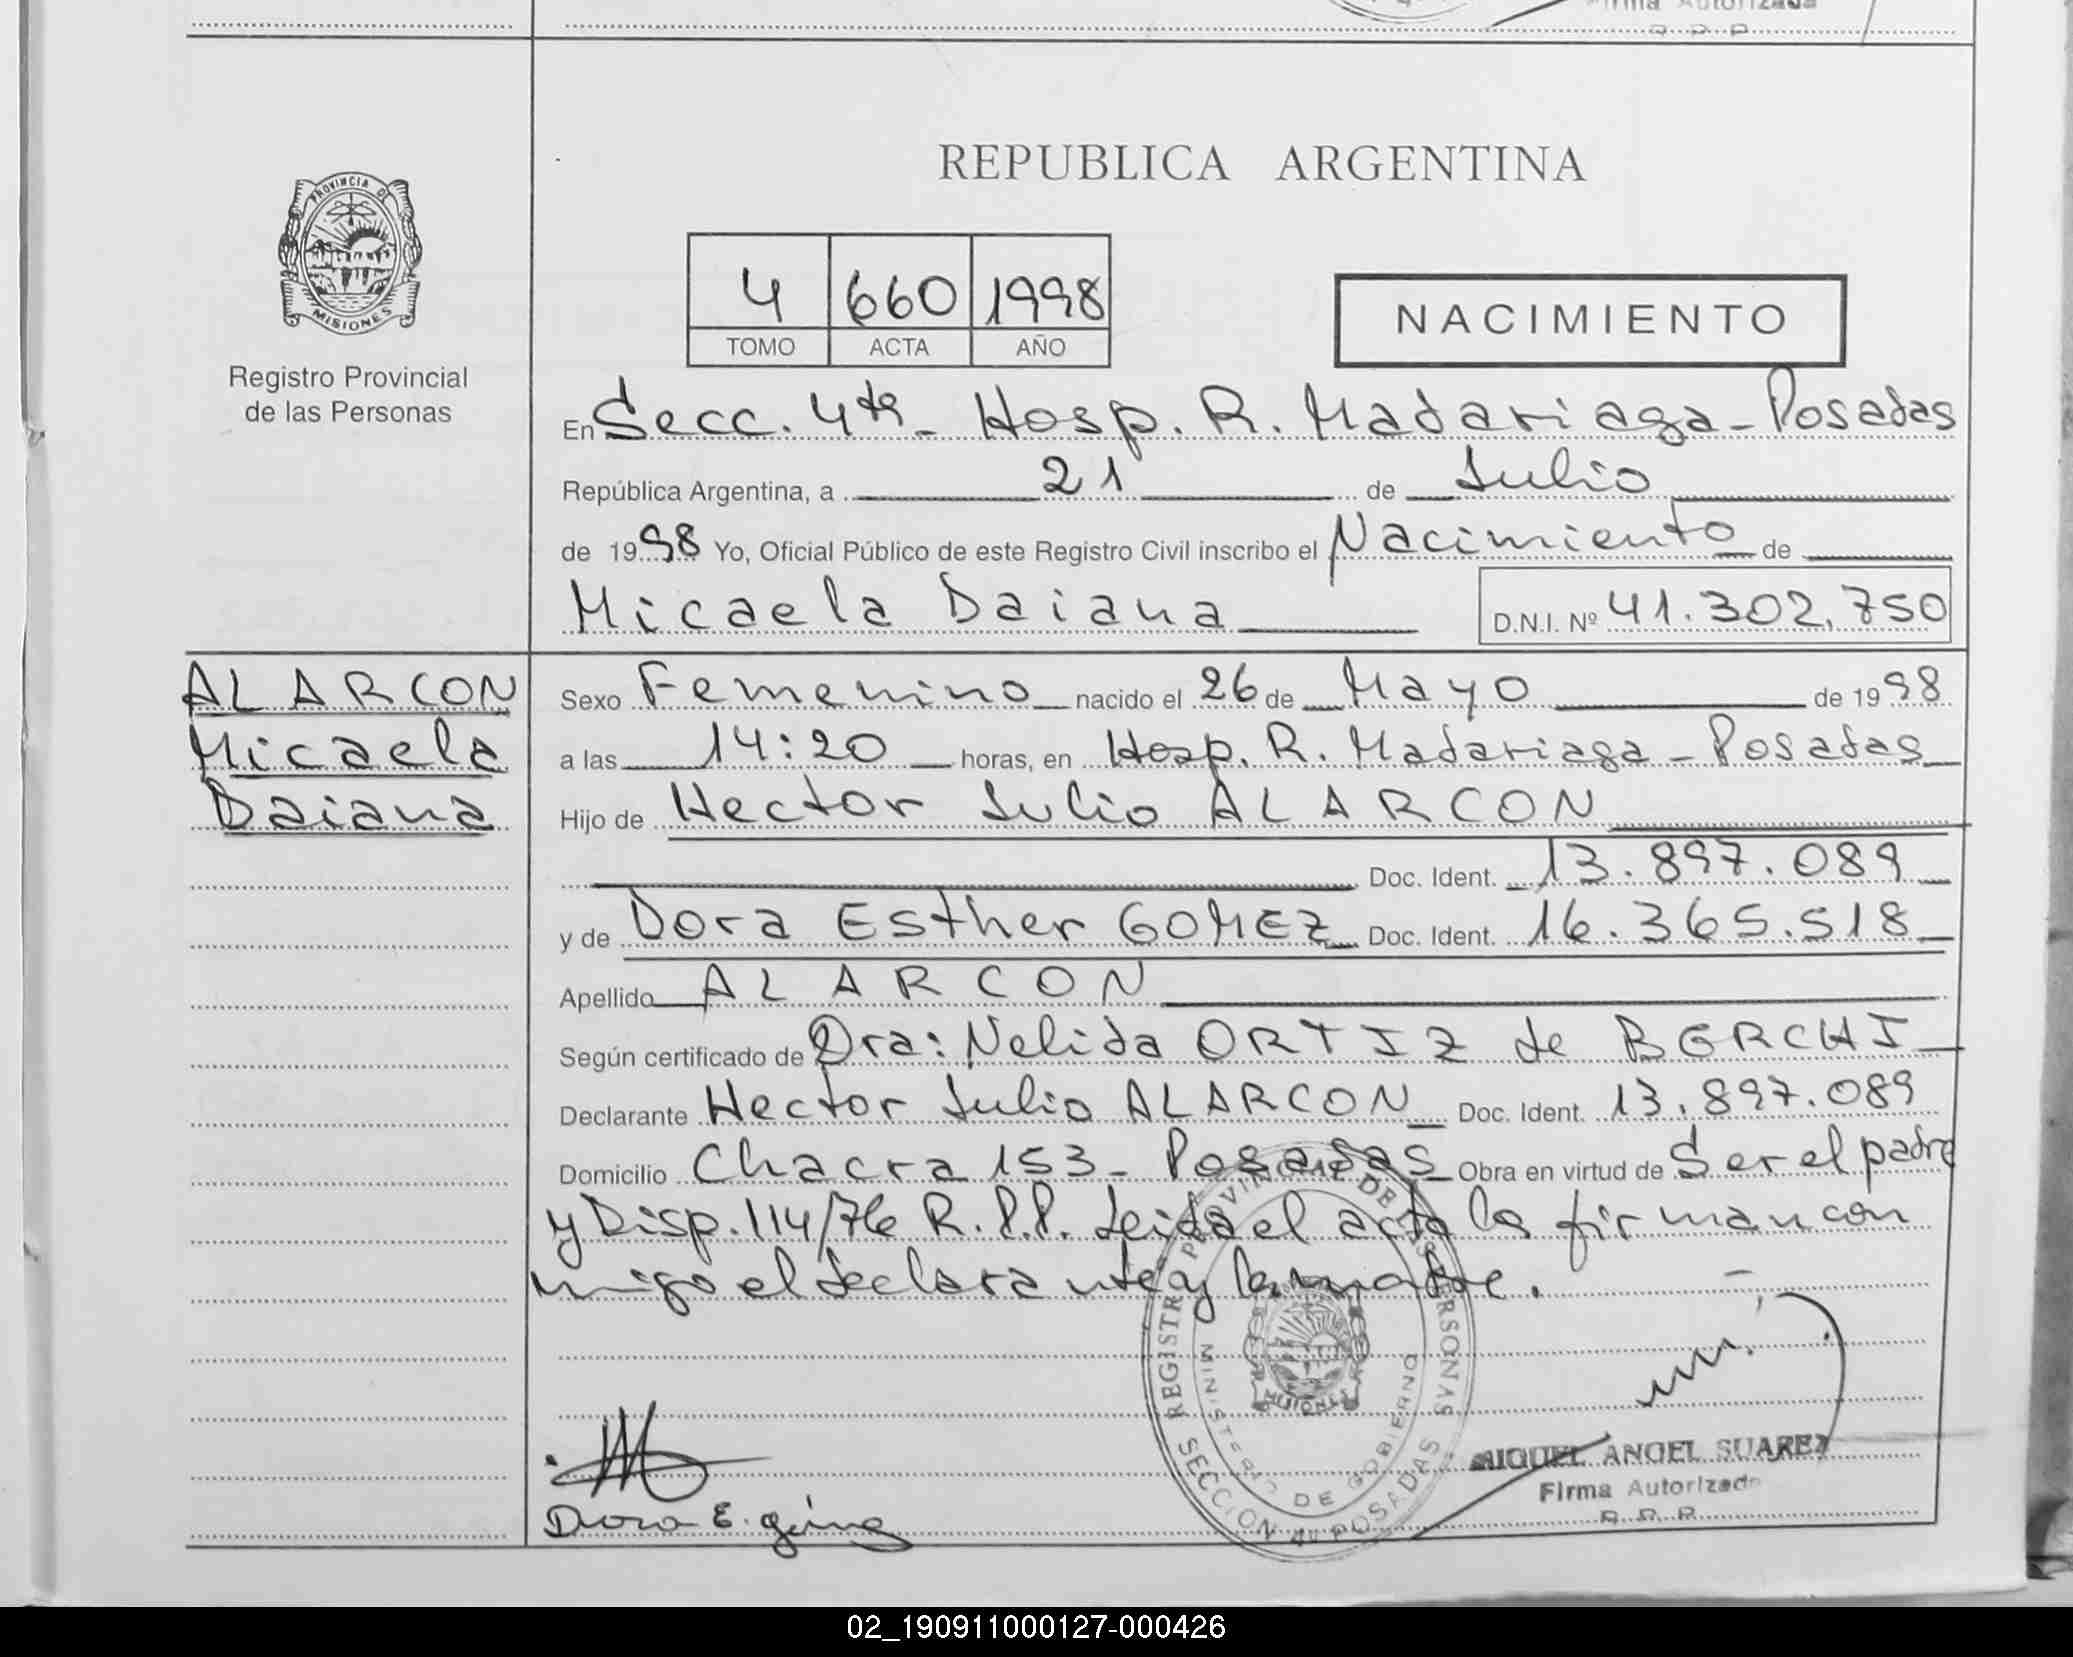 Firma Autorizada
R. P. P.
PROVINCIA DE
MISIONES
Registro Provincial
de las Personas
REPUBLICA ARGENTINA
4 660 1998
TOMO ACTA AÑO
NACIMIENTO
En Secc. 4ta - Hosp. R. Madariaga - Posadas
República Argentina, a 21 de Julio
de 1998 Yo, Oficial Público de este Registro Civil inscribo el Nacimiento de
Micaela Daiana D.N.I. Nº 41.302.750
ALARCON
Micaela
Daiana
Sexo Femenino nacido el 26 de Mayo de 1998
a las 14:20 horas, en Hosp. R. Madariaga - Posadas
Hijo de Hector Julio ALARCON
Doc. Ident. 13.897.089
y de Dora Esther GOMEZ Doc. Ident. 16.365.518
Apellido ALARCON
Según certificado de Dra: Nelida ORTIZ de BERCHI
Declarante Hector Julio ALARCON Doc. Ident. 13.897.089
Domicilio Chacra 153 - Posadas Obra en virtud de Ser el padre
y Disp. 114/76 R.P.P. Leida el acta la firman con
migo el declarante y la madre.
REGISTRO PROVINCIAL DE LAS PERSONAS
MINISTERIO DE GOBIERNO
MISIONES
SECCION 4ta POSADAS
MIGUEL ANGEL SUAREZ
Firma Autorizada
R. P. P.
Dora E. Gómez
02_190911000127-000426